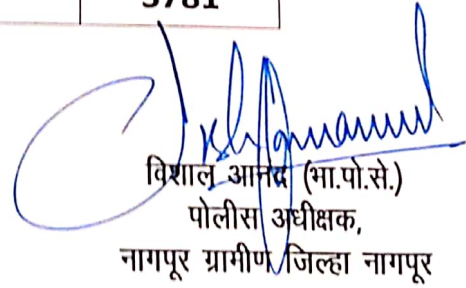 3781
विशाल आनंद (भा.पो.से.)
पोलीस अधीक्षक,
नागपूर ग्रामीण जिल्हा नागपूर